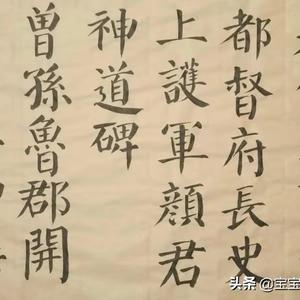 都督府長史
上護軍顏君
神道碑
曾孫魯郡開
头条 @宝宝